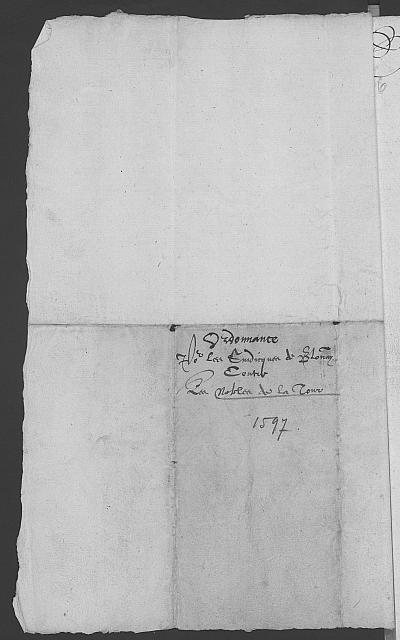 Ordonnance
Pr les Sindicques de Blonay
Contre
Les Nobles de la Tour
1597.
6